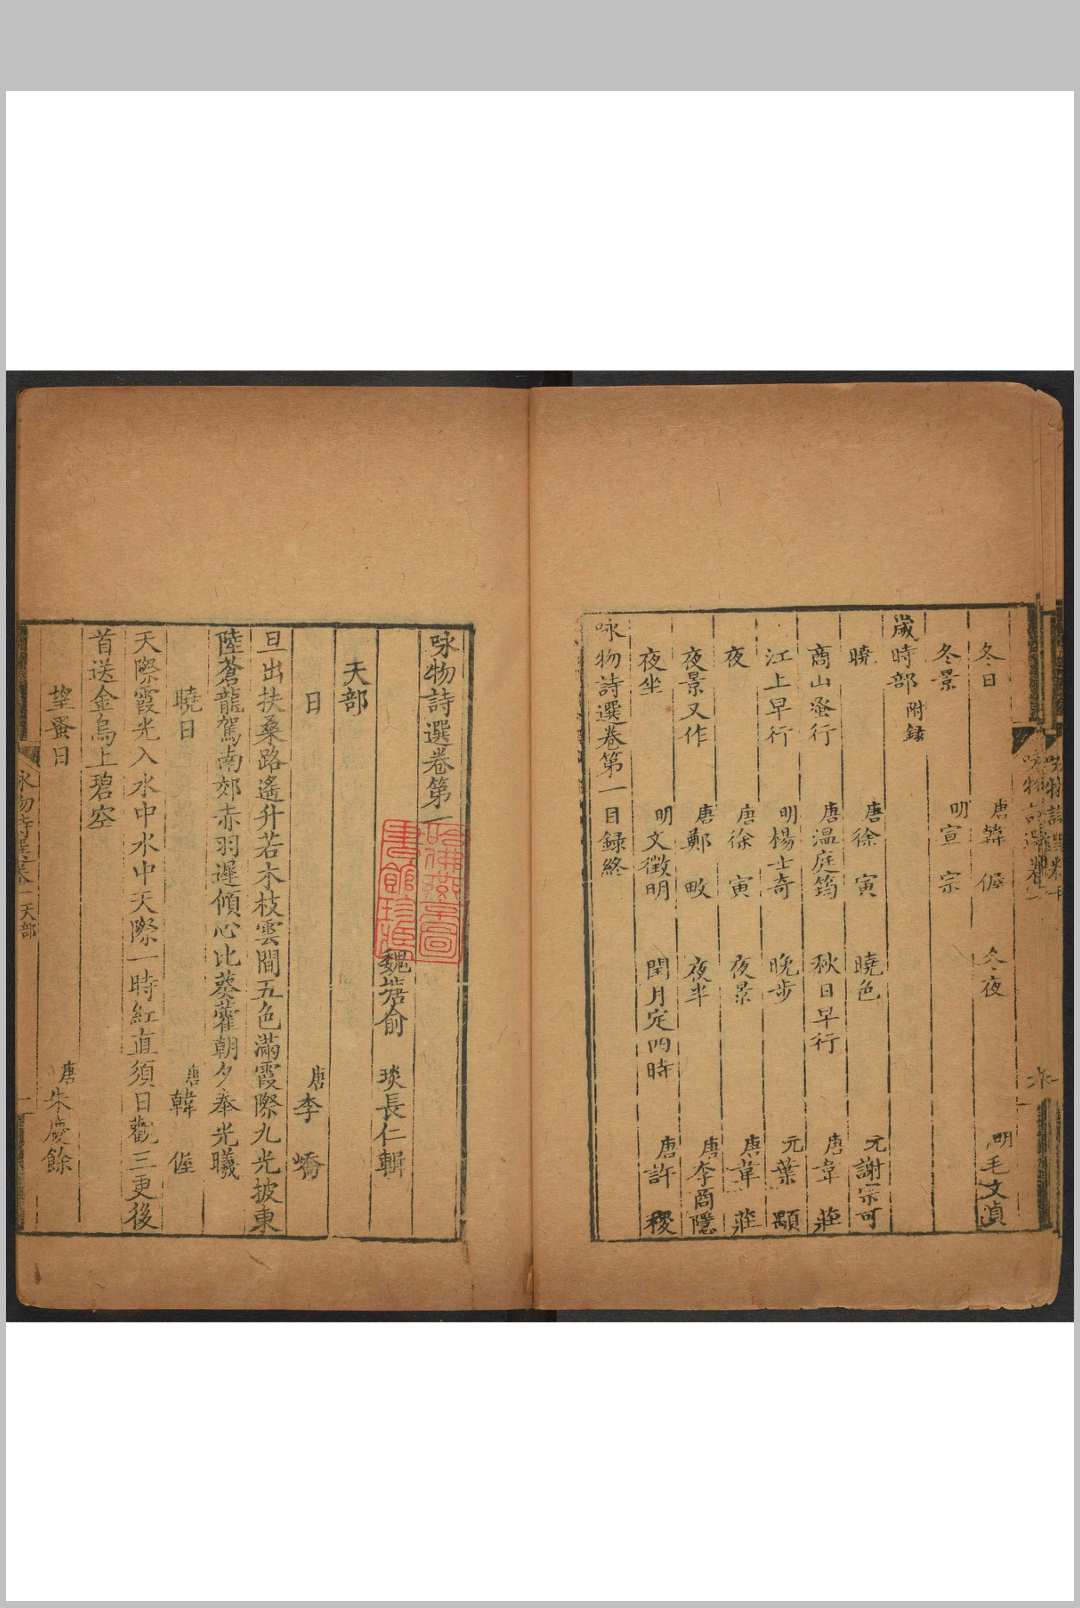 冬日 唐韓偓 冬夜 明毛文滇
冬景 明宣宗
歲時部附録
曉 唐徐寅 曉色 元謝宗可
商山蚤行 唐温庭筠 秋日早行 唐韋莊
江上早行 明楊士奇 晚步 元葉顒
夜 唐徐寅 夜景 唐韋莊
夜景又作 唐鄭畋 夜半 唐李商隱
夜坐 明文徵明 閏月定四時 唐許稷
咏物詩選卷第一目録終
咏物詩選卷第一
魏塘俞琰長仁輯
哈佛燕京圖書館珍藏
天部
日 唐李嶠
旦出扶桑路遙升若木枝雲間五色滿霞際九光披東
陸蒼龍駕南郊赤羽遲傾心比葵藿朝夕奉光曦
曉日 唐韓偓
天際霞光入水中水中天際一時紅直須日觀三更後
首送金烏上碧空
望蚤日 唐朱慶餘
咏物詩選卷一 天部 一